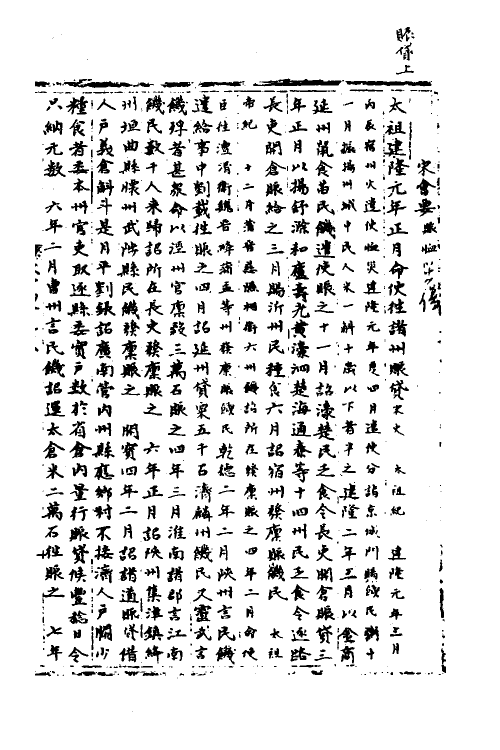 賑貸上
宋會要 賑恤
太祖建隆元年正月命使往諸州賑貸 宋史 太祖紀 建隆元年三月
內辰宿州火遣使恤災建隆元年四月遣使分詣京城門賜饑民粥十
一月振揚州城中民人米一斛十歲以下者半之建隆二年三月以金商
延州鼠食苗民饑遣使賑之十一月詔濠楚民乏食令長吏開倉賑貸三
年正月以揚舒滁和廬壽光黃濠泗楚海通泰等十四州民乏食令逐路
長吏開倉賑給之三月賜沂州民種食六月詔宿州發廩賑饑民 太祖
本紀 十二月蒲晉慈隰相衛六州饑詔所在發廩賑之四年二月命使
臣往澶滑衛魏晉絳蒲孟等州發廩賑饑民乾德二年二月陝州言民饑
遣給事中劉載往賑之四月詔延州貸粟五千石濟麟州饑民又靈武言
饑殍者甚眾命以涇州官廩穀三萬石賑之四年三月淮南諸郡言江南
饑民數千人來歸詔所在長吏發廩賑之 六年正月詔陝州集津鎮絳
州垣曲縣懷州武陟縣民饑發廩賑之 開寶四年二月詔諸道賑貸借
人戶義倉斛斗是月平劉鋹詔廣南管內州縣應鄉村不接濟人戶闕少
糧食者委本州官吏取逐縣委實戶數於省倉內量行賑貸候豐稔日令
只納元數 六年二月曹州言民饑詔運太倉米二萬石往賑之 七年